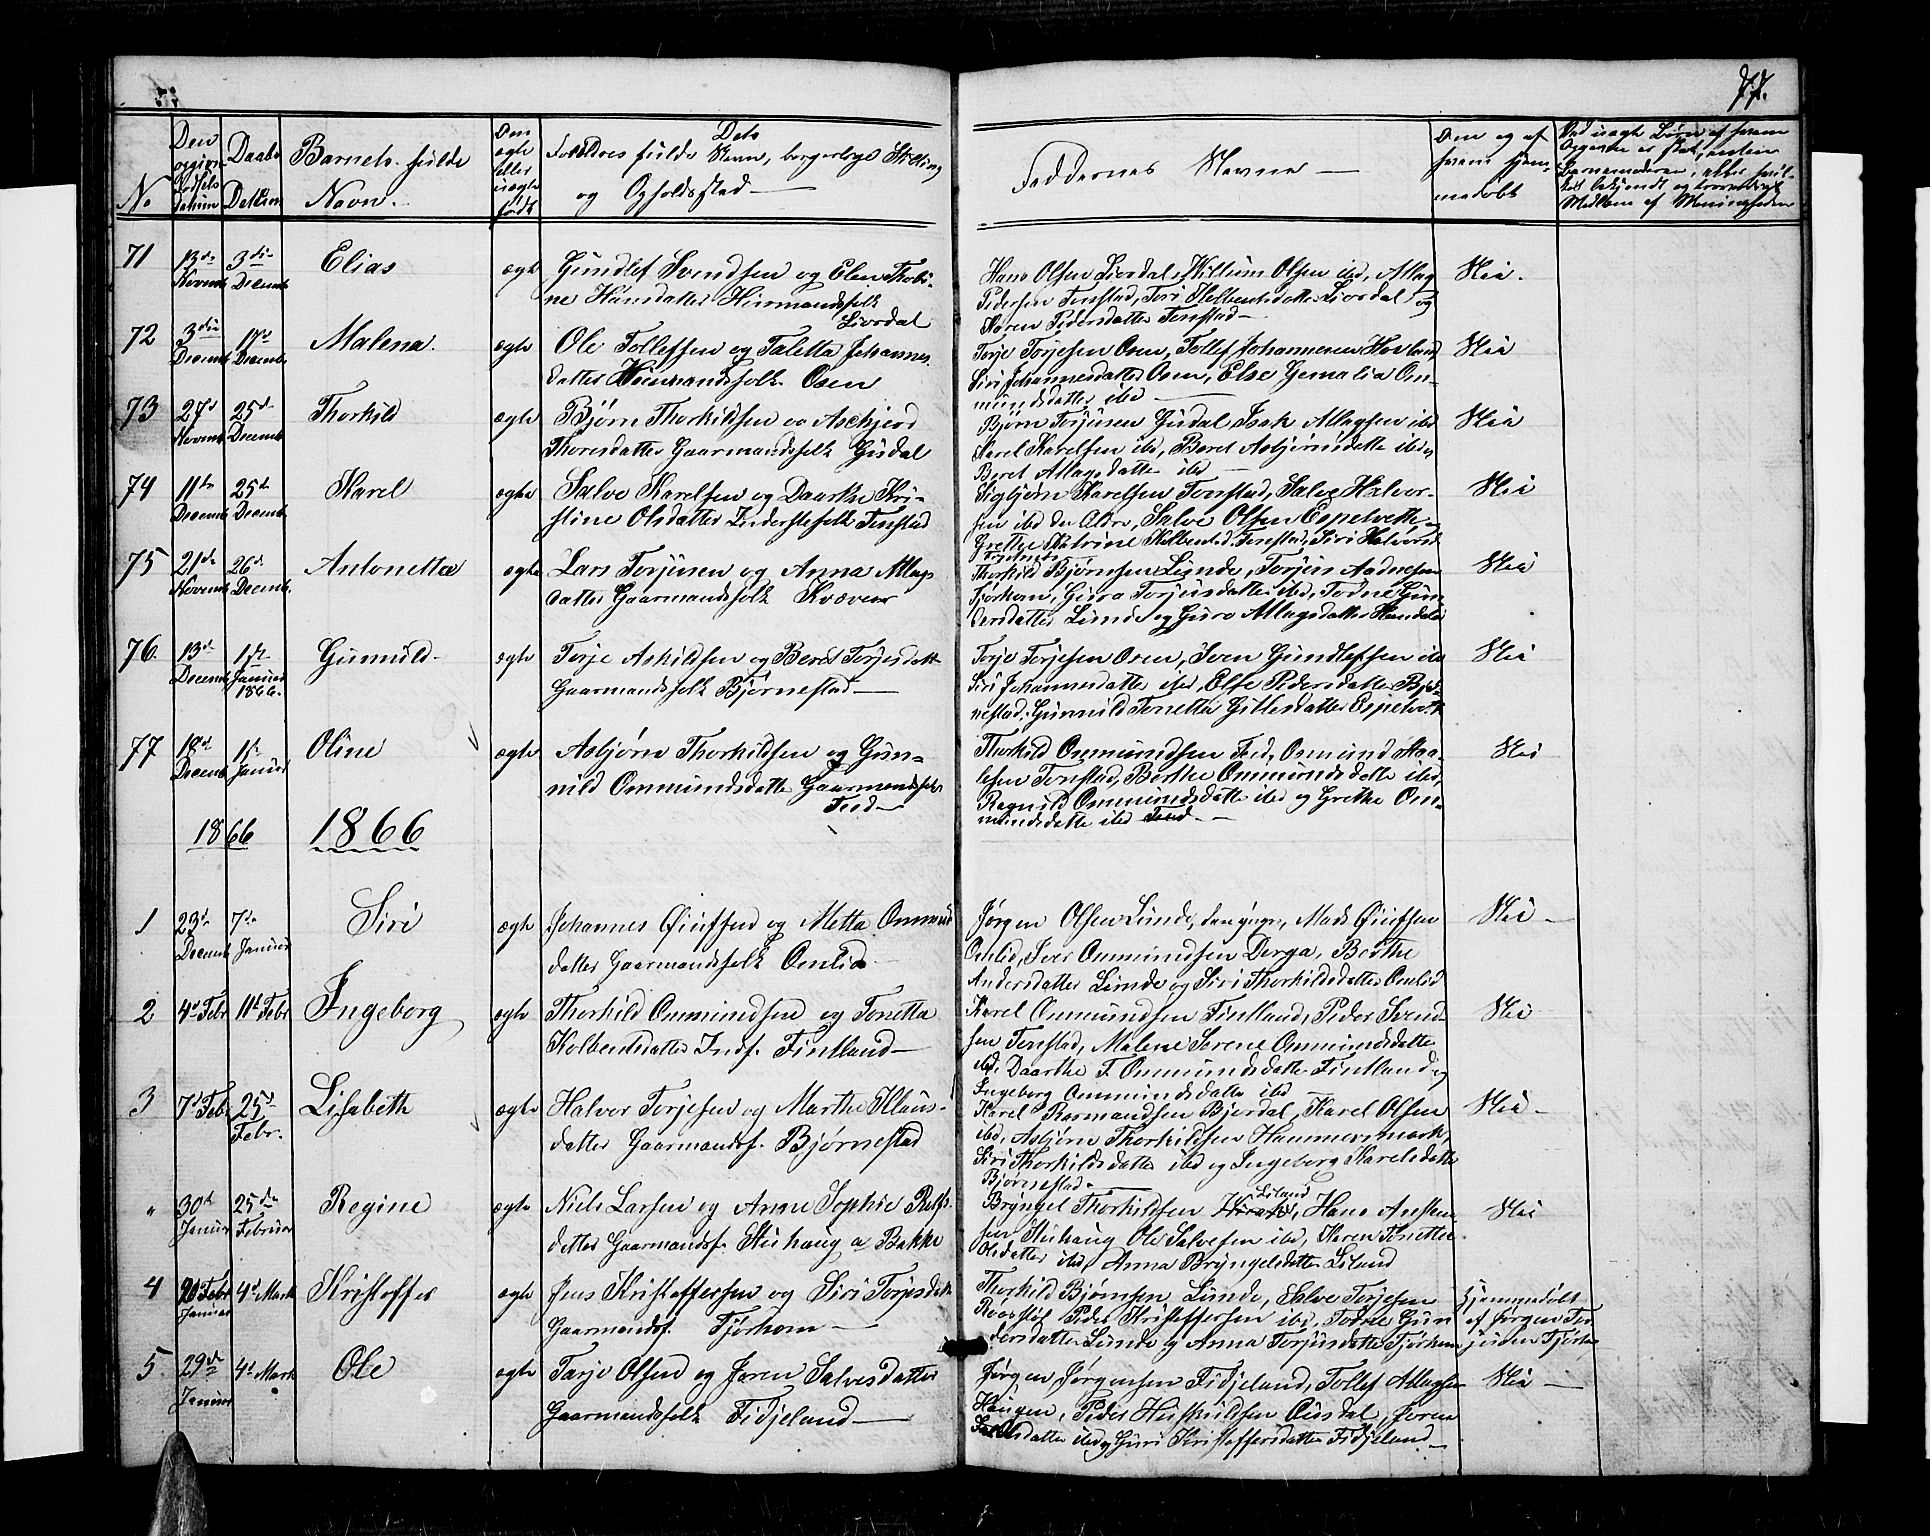 77.
No
Den opgivne Fødsels datum
Daabs Datum
Barnets fulde Navn.
Om ægte eller uægte født
Forældres fulde Navn, borgerlige Stilling og Opholdsstad
Faddernes Navne
Om og af hvem hjemmedøbt
71 13de Novemb 3die Decemb Elias ægte Gundlef Svendsen og Elen Thobi-
ne Hansdatter Huusmandsfolk
Liordal
Hans Olsen Liordal, Willum Olsen ibd, Atlag
Pedersen Tonstad, Tori Kolbentsdatter Liordal og
Karen Pedersdatter Tonstad Nei.
72 3die Decemb 17d Decemb. Malena. ægte Ole Tollefsen og Taletta Johannes
datter Huusmandsfolk Osen
Torje Torjesen Osen, Tollef Johannesen Hovland,
Siri Johannesdatter Osen, Else Gemalia Om-
mundsdatter ibd Nei
73 27d Novemb 25d Decemb Thorkild ægte Bjørn Thorkildsen og Aschjerd
Thoresdatter Gaarmandsfolk Gusdal
Bjørn Torjusen Gusdal, Isak Atlagsen ibd
Karel Karelsen ibd, Beret Asbjørnsdatte ibd og
Beret Atlagsdatter ibd Nei
74 11te Decemb 25d Decemb. Karel ægte Salve Karelsen og Daarthe Kri-
stine Olsdatter Inderstefolk Tonstad
Sigbjørn Karelsen Tonstad, Salve Halvor-
sen ibd den Ældre, Salve Olsen Espetveth og
Grethe Katrine Kolbentsd. Tonstad, Siri Halvorsd. Nei
75 21de Novemb 26d. Decemb. Antonetta ægte Lars Torjusen og Anna Atlags
datter Gaarmandsfolk Kvæven
Thorkild Bjørnsen Lunde, Torjus Aadnesen
Tjørhom, Guro Torjusdatter ibd, Todne Gun
dersdatter Lunde og Guro Atlagsdatter Haudalen Nei
76. 13d Decemb 1ste Januar 1866. Gunnild. ægte Torje Askildsen og Beret Torjesdatt.
Gaarmandsfolk Bjørnestad
Torje Torjesen Osen, Sven Gundlefsen ibd
Siri Johannesdatter ibd, Else Pedersdatter Bjør-
nestad. Gunnild Tonetta Gitlesdatter Espetvet Nei
77 18d Decemb 1ste Januar Oline ægte Asbjørn Thorkildsen og Gun-
nild Ommundsdatte Gaarmandsfolk
Fred
Thorkild Ommundsen Fed, Osmund Aaa-
lesen Tonstad, Berthe Ommundsdatte ibd,
Ragnild Ommundsdatte ibd og Grethe Om-
mundsdatte ibd Nei
1866 1866
1 23d Decemb 7de Januar Siri ægte Johannes Øiufsen og Metta Ommund
datter Gaarmandsfolk Omlid
Jørgen Olsen Lunde, den yngre, Mads Øiufsen
Omlid, Iver Ommundsen Derga, Berthe
Andersdatter Lunde og Siri Thorkildsdatter Omlid Nei
2 4d Febr 11te Febr Ingeborg ægte Thorkild Ommundsen og Tonetta
Kolbentsdatter Indf. Fintland
Karel Ommundsen Fintland, Peder Svend-
sen Tonstad, Malene Serene Ommundsdatte
ibd, Daarthe T. Ommundsdatte Fintland og
Ingeborg Ommundsdatte ibd Nei
3 7d Febr 25d Febr. Lisabeth ægte Halvor Torjesen og Marthe Klaus-
datter Gaarmandsf. Bjørnestad
Karel Rasmundsen Bjordal, Karel Olsen
ibd, Asbjørn Thorkildsen Hammersmark,
Siri Thorkildsdatte ibd og Ingeborg Karelsdatte
Bjørnestad Nei
" 30te Januar 25de Februar Regine ægte Niels Larsen og Anne Sophie Rolfs
datter Gaarmandsf. Stuhaug a Bakke
Bryngel Thorkildsen Liland, Hans Ansten-
sen Stuhaug Ole Salvesen ibd, Karen Tonette
Olsdatter ibd, Anna Bryngelsdatter Liland Nei
4 20 Febr Januar 4d Mark Kristoffer ægte Jens Kristoffersen og Siri Torjesdatt
Gaarmandsf. Tjørhom
Thorkild Bjørnsen Lunde, Salve Torjesen
Roosstøl Peder Kristoffersen ibd, Todne Gun
dersdatter Lunde og Anna Torjusdatter Tjørhom
Hjemmedøbt af Jørgen Torjusen Tjørhom
5 29de Januar 4d Mark Ole ægte Tarje Olsen og Joren Salvesdatter
Gaarmandsfolk Fidjeland
Jørgen Jørgensen Fidjeland, Tollef Atlagsen
Haugen, Peder Huskuldsen Ousdal, Joren
Olsdatter ibd og Guri Kristoffersdatter Fidjeland Nei